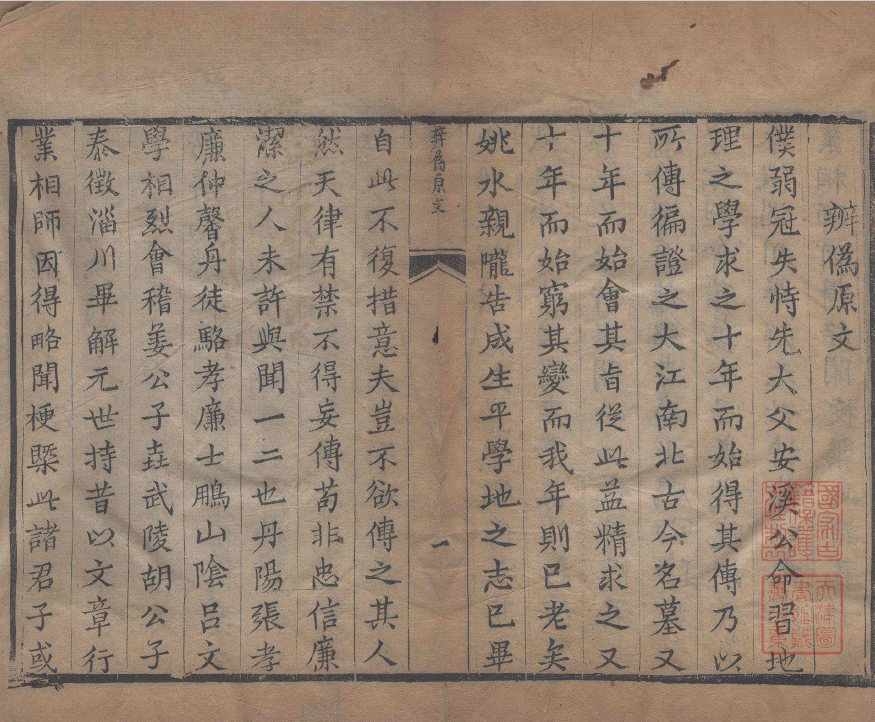 辨僞原文
僕弱冠失恃先大父安溪公命習地
理之學求之十年而始得其傳乃以
所傳徧證之大江南北古今名墓又
十年而始會其旨從此益精求之又
十年而始窮其變而我年則已老矣
姚水親隴告成生平學地之志已畢
辨僞原文
一
自此不復措意夫豈不欲傳之其人
然天律有禁不得妄傳苟非忠信廉
潔之人未許與聞一二也丹陽張孝
廉仲馨丹徒駱孝廉士鵬山陰呂文
學相烈會稽姜公子垚武陵胡公子
泰徵淄川畢解元世持昔以文章行
業相師因得略聞梗槩此諸君子或